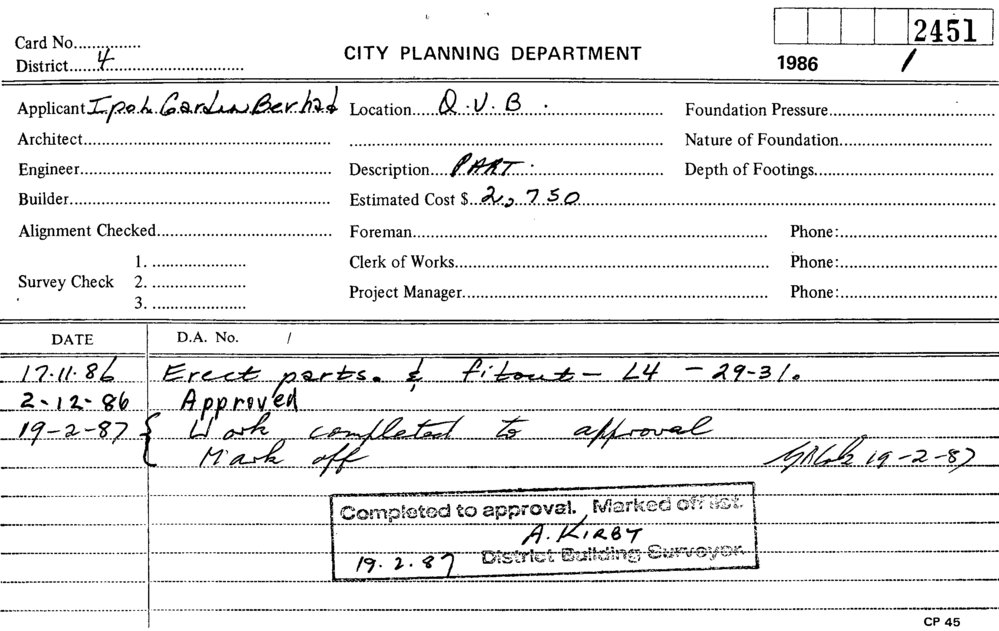 2451
Card No.
District 4
CITY PLANNING DEPARTMENT
1986 /
Applicant Ipoh Garden Berhad Location Q.V.B. Foundation Pressure
Architect Nature of Foundation
Engineer Description PART. Depth of Footings
Builder Estimated Cost $ 2,750
Alignment Checked Foreman Phone:
1. Clerk of Works Phone:
Survey Check 2.
Project Manager Phone:
3.
DATE D.A. No. /
17.11.86 Erect parts. & fitout – L4 – 29-31.
2-12-86 Approved
19-2-87 { Work completed to approval
Mark off 19-2-87
Completed to approval. Marked off list.
A. KIRBY
19.2.87 District Building Surveyor.
CP 45